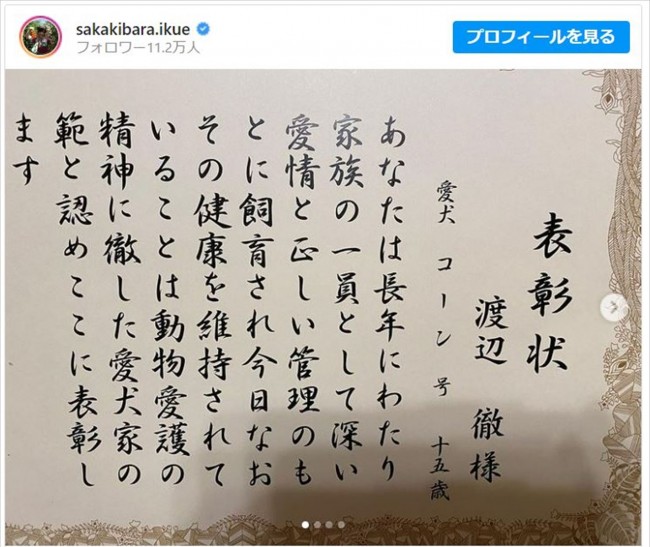 sakakibara.ikue
フォロワー11.2万人
プロフィールを見る
表彰状
渡辺 徹様
愛犬 コーン号 十五歳
あなたは長年にわたり
家族の一員として深い
愛情と正しい管理のも
とに飼育され今日なお
その健康を維持されて
いることは動物愛護の
精神に徹した愛犬家の
範と認めここに表彰し
ます